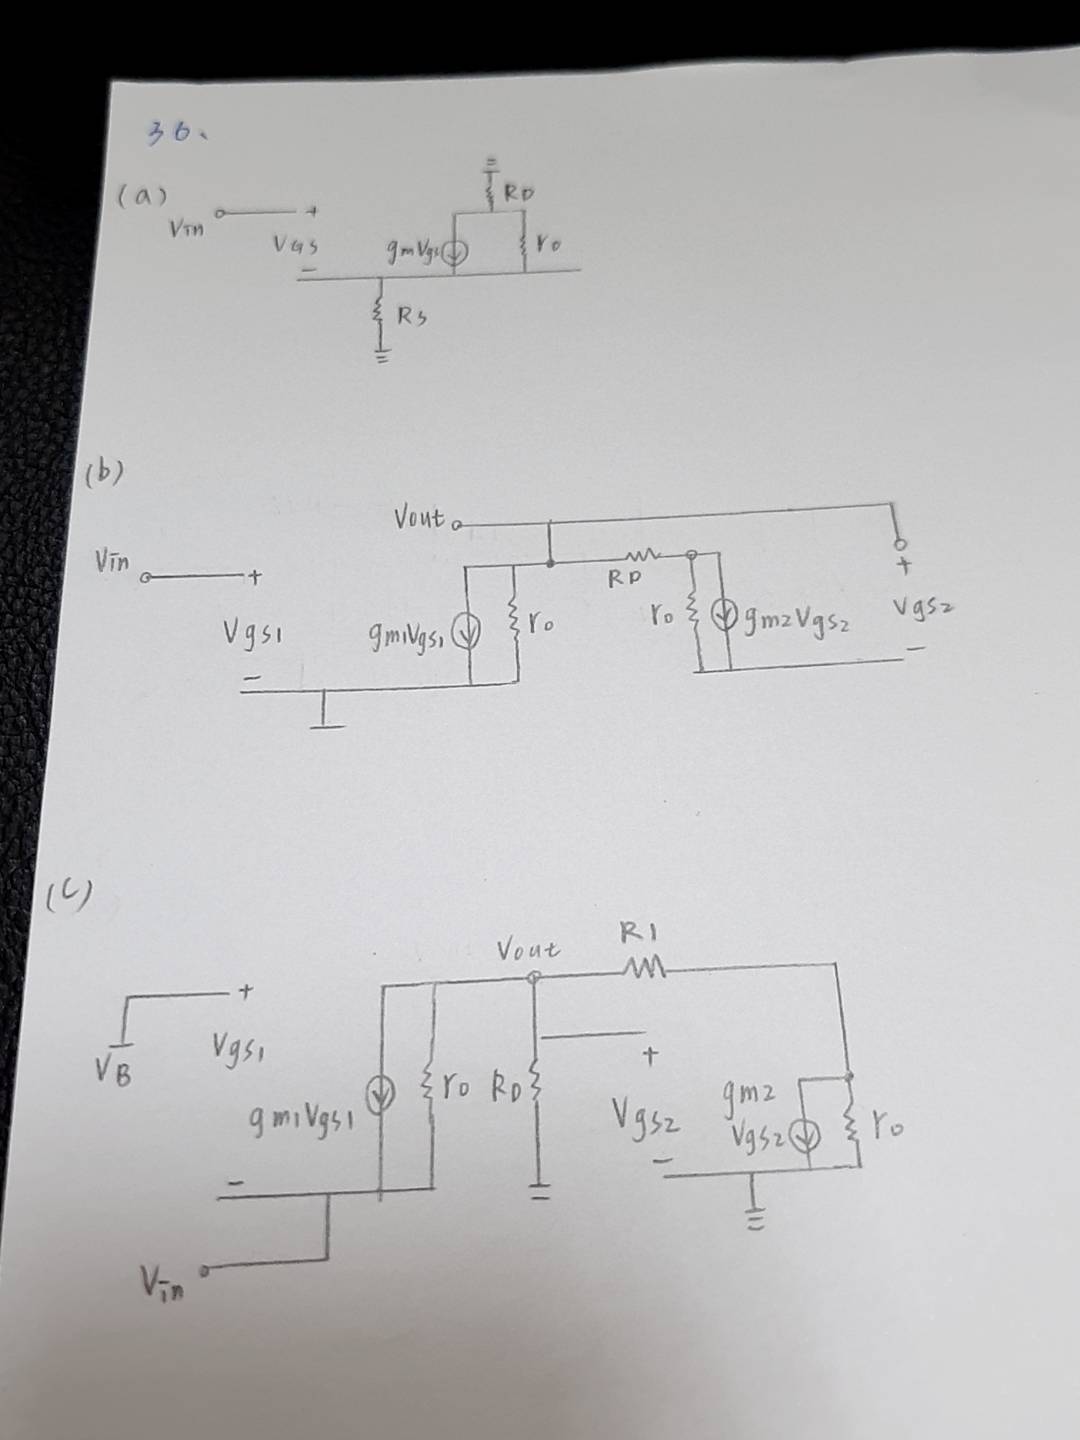 36.
(a)
RD
Vin
+
VGS
gmVgs
ro
-
Rs
(b)
Vout
Vin
+
+
RD
Vgs1
gm1Vgs1
ro
ro
gm2Vgs2
Vgs2
-
-
(c)
R1
Vout
+
VB
Vgs1
+
gm1Vgs1
ro
RD
Vgs2
gm2
Vgs2
ro
-
-
Vin